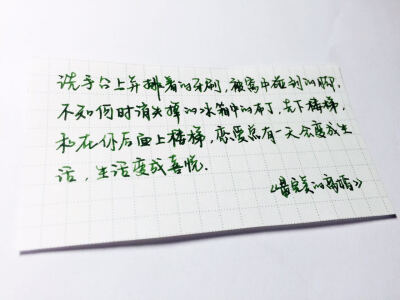 洗手台上并排着的牙刷，被窝中碰到的脚，
不知何时消失掉的冰箱中的布丁，先下楼梯，
和在你后面上楼梯，恋爱总有一天会变成生
活，生活变成喜悦．
《最完美的离婚》